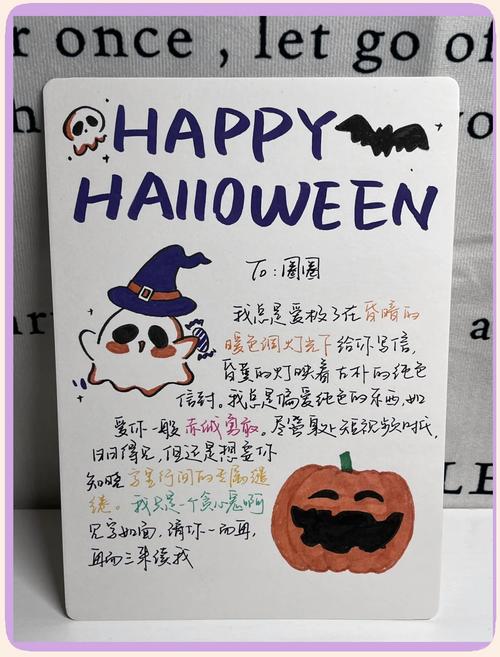 r once , let go of
HAPPY
HAllOWEEN
To:圈圈
我总是爱极了在昏暗的
暖色调灯光下给你写信,
昏黄的灯映着古朴的纯色
信封。我总是偏爱纯色的东西,如
爱你一般赤诚勇敢。尽管身处短视频时代,
日日得见,但还是想要你
知晓字里行间的专属缱
绻。我真是一个贪心鬼啊
见字如面,请你一而再,
再而三来续我